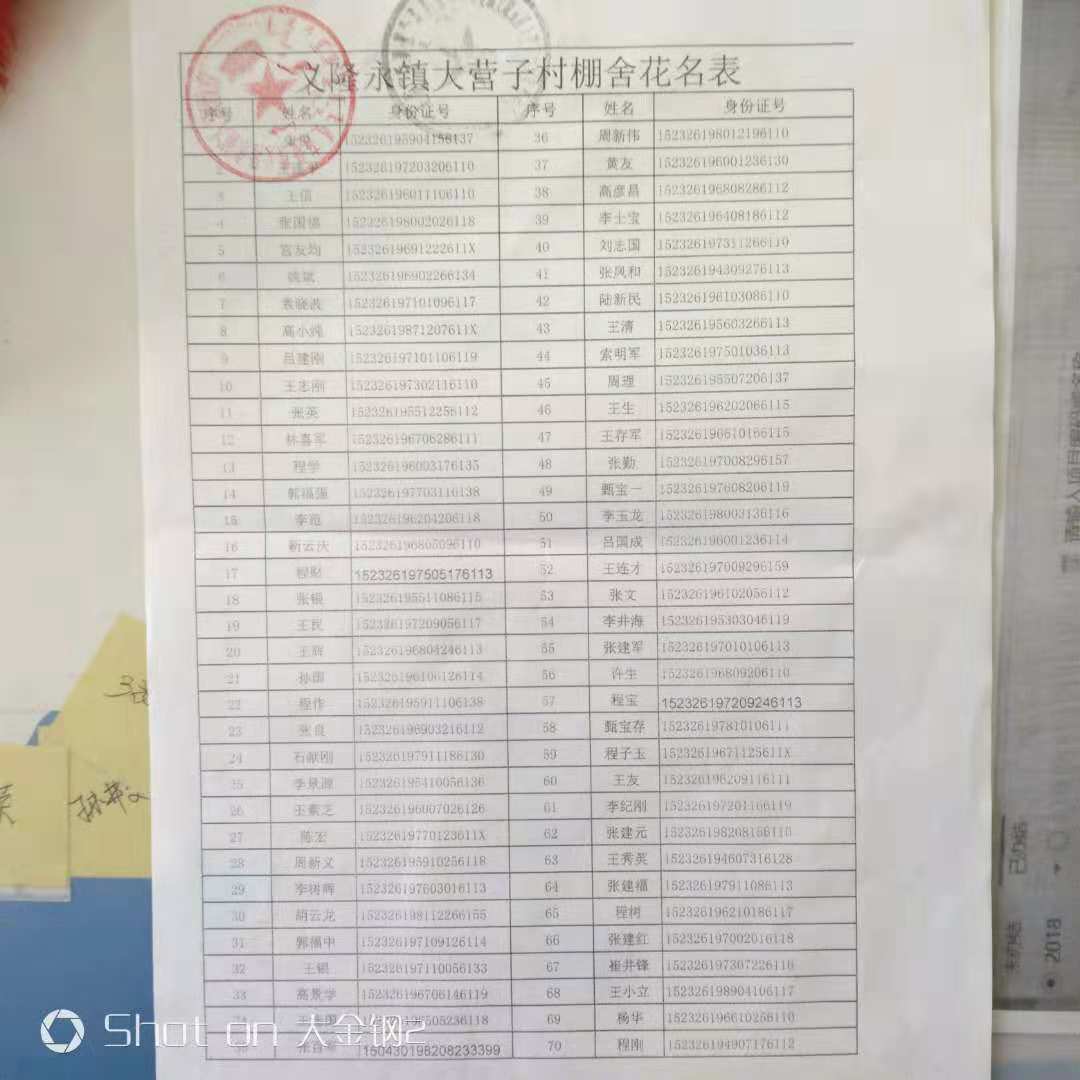 义隆永镇大营子村棚舍花名表
序号 姓名 身份证号 序号 姓名 身份证号
152326195904156137 36 周新伟 152326198012196110
2 152326197203206110 37 黄友 152326196001236130
3 王信 152326196011106110 38 高彦昌 152326196808286112
4 张国福 152326198002026118 39 李士宝 152326196408186112
5 宫友均 15232619691222611X 40 刘志国 152326197311266110
6 姚斌 152326196902266134 41 张凤和 152326194309276113
7 袁晓波 152326197101096117 42 陆新民 152326196103086110
8 高小纯 15232619871207611X 43 王清 152326195603266113
9 吕建刚 152326197101106119 44 索明军 152326197501036113
10 王志刚 152326197302116110 45 周理 152326195507206137
11 张英 152326195512256112 46 王生 152326196202066115
12 林喜军 152326196706286111 47 王存军 152326196610166115
13 程学 152326196003176135 48 张勤 152326197008296157
14 郭福强 152326197703116138 49 甄宝一 152326197608206119
15 李范 152326196204206118 50 李玉龙 152326198003136116
16 靳云庆 152326196805096110 51 吕国成 152326196001236114
17 程财 152326197505176113 52 王连才 152326197009296159
18 张银 152326195511086115 53 张文 152326196102056112
19 王民 152326197209056117 54 李井海 152326195303046119
20 王辉 152326196804246113 55 张建军 152326197010106113
21 孙国 152326196106126114 56 许生 152326196809206110
22 程作 152326195911106138 57 程宝 152326197209246113
23 张良 152326196903216112 58 甄宝存 152326197810106111
24 石献刚 152326197911186130 59 程子玉 15232619671125611X
25 李景源 152326195410056136 60 王友 152326196209116111
26 王素芝 152326196007026126 61 李纪刚 152326197201166119
27 陈宏 15232619770123611X 62 张建元 152326198208156110
28 周新义 152326195910256118 63 王秀英 152326194607316128
29 李树辉 152326197603016113 64 张建福 152326197911086113
30 胡云龙 152326198112266155 65 程树 152326196210186117
31 郭福中 152326197109126114 66 张建红 152326197002016118
32 王银 152326197110056133 67 崔井锋 152326197307226116
33 高景学 152326196706146119 68 王小立 152326198904106117
505236118 69 杨华 152326196610256110
150430198208233399 70 程刚 152326194907176112
孙英文
Shot on 大金钢2
已办结
2018